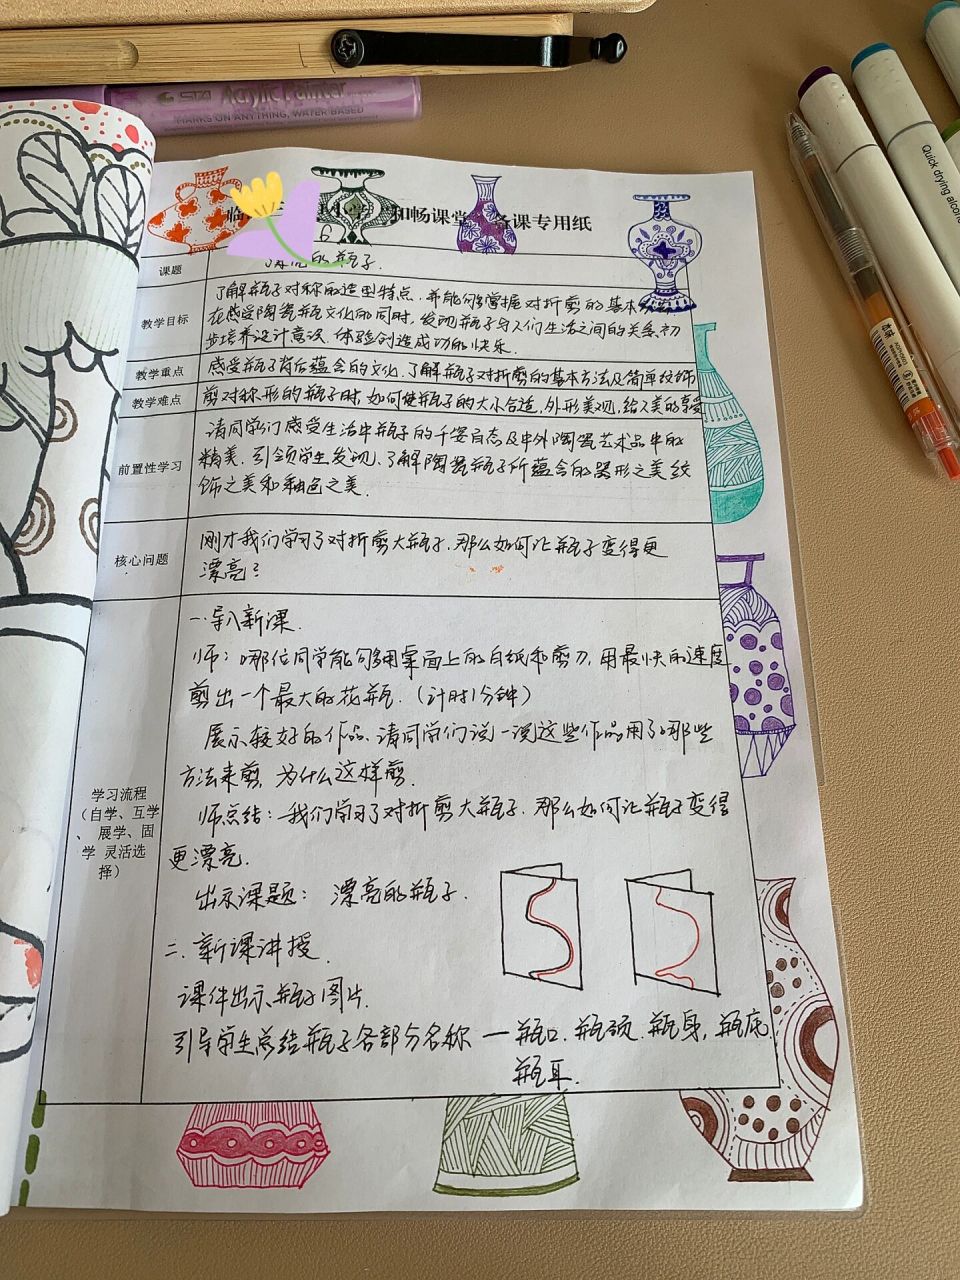 STA Acrylic Painter
THANKS ON ANYTHING, WATER-BASED
Quick drying alcoho
临 小学 和畅课堂 备课专用纸
6
课题 漂亮的瓶子.
教学目标 了解瓶子对称的造型特点,并能够掌握对折剪的基本
在感受陶瓷瓶文化的同时,发现瓶子与人们生活之间的关系,初
步培养设计意识,体验创造成功的快乐.
教学重点 感受瓶子背后蕴含的文化.了解瓶子对折剪的基本方法及简单纹饰
教学难点 剪对称形的瓶子时,如何使瓶子的大小合适,外形美观,给人美的享受
前置性学习 请同学们感受生活中瓶子的千姿百态及中外陶瓷艺术品中的
精美.引领学生发现、了解陶瓷瓶子所蕴含的器形之美纹
饰之美和釉色之美.
核心问题 刚才我们学习了对折剪大瓶子.那么如何让瓶子变得更
漂亮?
学习流程
(自学、互学
、展学、固
学 灵活选
择)
一.导入新课.
师:哪位同学能够用桌面上的白纸和剪刀,用最快的速度
剪出一个最大的花瓶.(计时1分钟)
展示较好的作品.请同学们说一说这些作品用了哪些
方法来剪,为什么这样剪.
师总结:我们学习了对折剪大瓶子.那么如何让瓶子变得
更漂亮.
出示课题: 漂亮的瓶子.
二.新课讲授.
课件出示瓶子图片.
引导学生总结瓶子各部分名称 — 瓶口.瓶颈.瓶身,瓶底,
瓶耳.